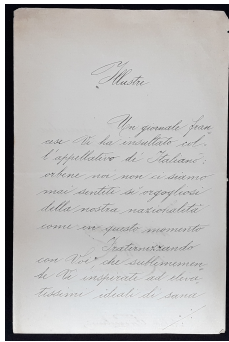 Illustre
Un giornale fran
cese Vi ha insultato col=
l'appellativo di Italiano:
orbene noi non ci siamo
mai sentiti si orgogliosi
della nostra nazionalità
come in questo momento
Fraternizzando
con Voi che sublimemen
te Vi inspirate ad eleva
tissimi ideale di sana